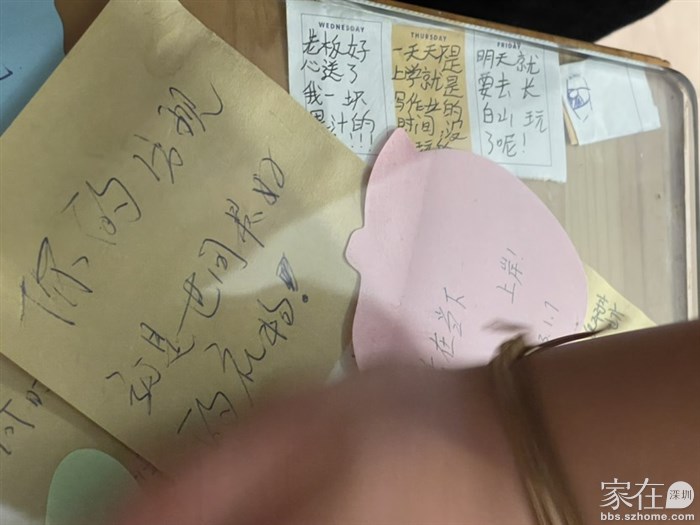 WEDNESDAY
老板好
心送了
我一块
墨汁的
!!!
THURSDAY
一天天不是
上学就是
写作业的
时间没
FRIDAY
明天就
要去长
白山玩
了呢!
你的出现
就是世间最好
的礼物!
在当下
上岸!
1.7
家在深圳
bbs.szhome.com